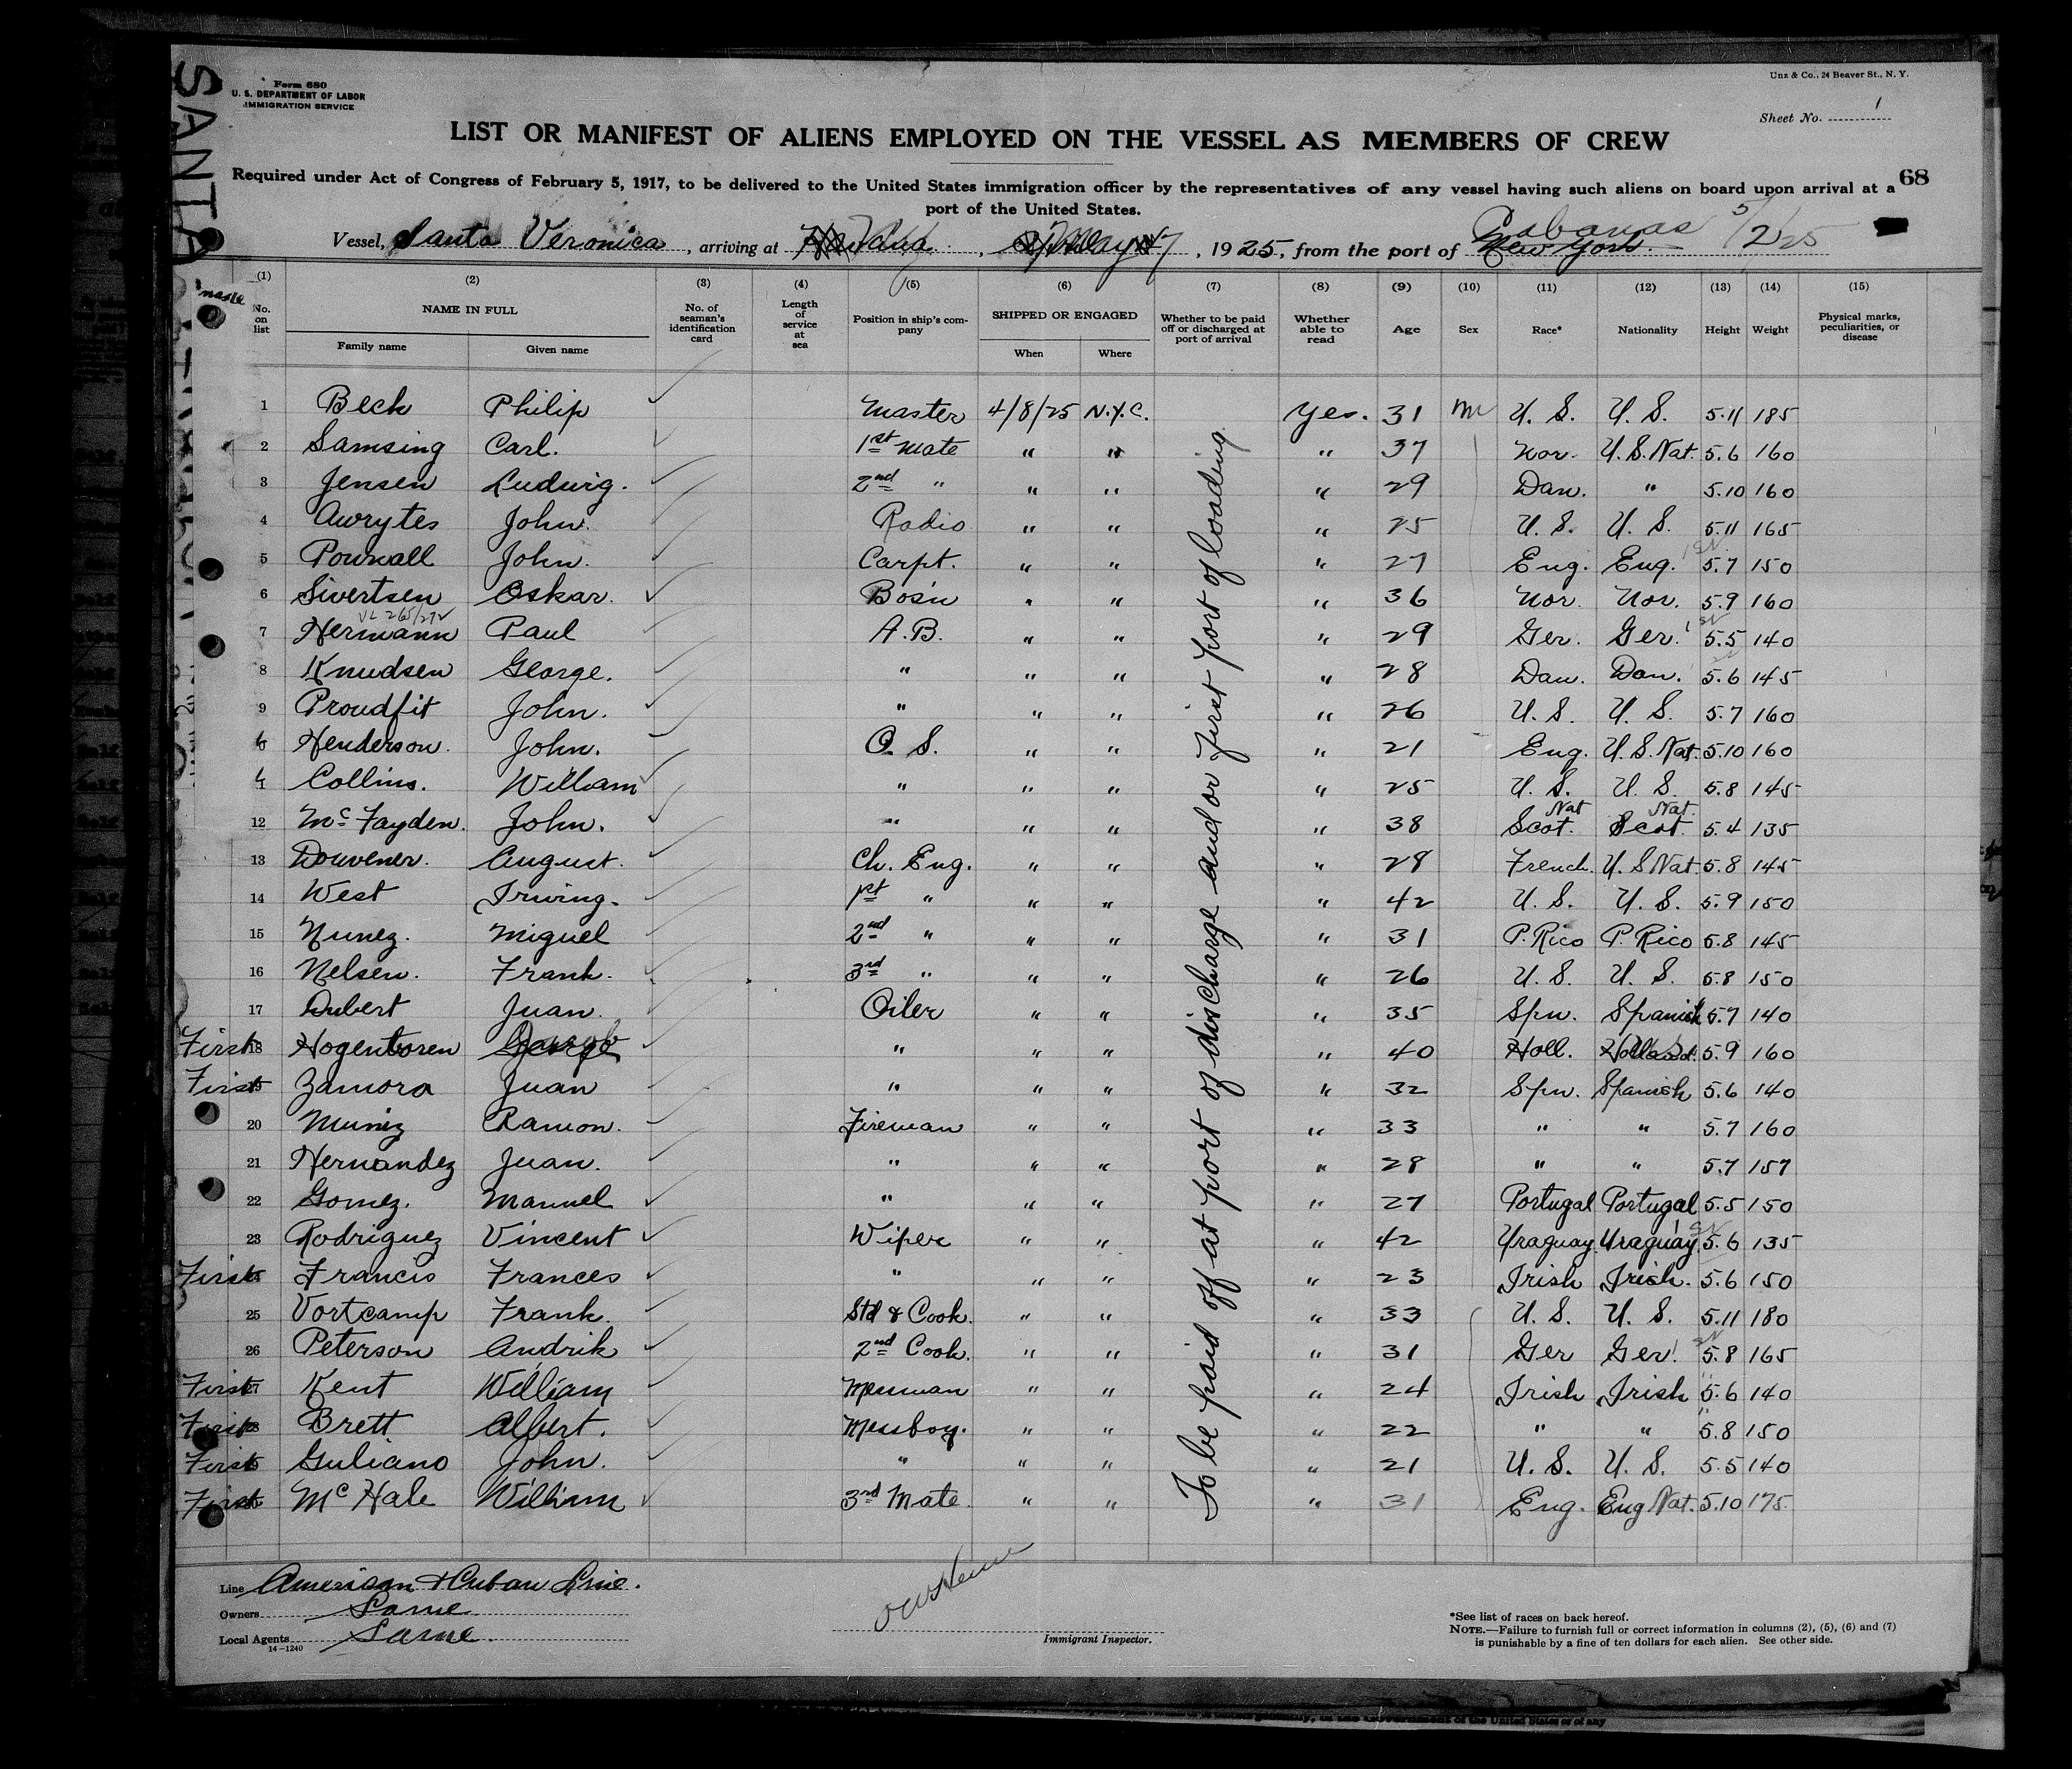 SANTA
Form 680
U. S. DEPARTMENT OF LABOR
IMMIGRATION SERVICE
Unz & Co., 24 Beaver St., N. Y.
Sheet No. 1
LIST OR MANIFEST OF ALIENS EMPLOYED ON THE VESSEL AS MEMBERS OF CREW
68
Required under Act of Congress of February 5, 1917, to be delivered to the United States immigration officer by the representatives of any vessel having such aliens on board upon arrival at a
port of the United States.
Cabanas 5/2/25
Vessel, Santa Veronica, arriving at , 1925, from the port of New York.
(1) (2) (3) (4) (5) (6) (7) (8) (9) (10) (11) (12) (13) (14) (15)
No. on list NAME IN FULL Family name Given name No. of seaman's identification card Length of service at sea Position in ship's company SHIPPED OR ENGAGED When Where Whether to be paid off or discharged at port of arrival Whether able to read Age Sex Race* Nationality Height Weight Physical marks, peculiarities, or disease
To be paid off at port of discharge and or first port of loading
1 Beck Philip Master 4/8/25 N.Y.C. Yes. 31 M U. S. U. S. 5.11 185
2 Samsing Carl. 1st Mate " " " 37 Nor. U.S. Nat. 5.6 160
3 Jensen Ludwig. 2nd " " " " 29 Dan. " 5.10 160
4 Awrytes John. Radio " " " 25 U. S. U. S. 5.11 165
5 Pownall John. Carpt. " " " 27 Eng. Eng. 5.7 150
6 Sivertsen Oskar. Bos'n " " " 36 Nor. Nor. 5.9 160
7 Hermann Paul A.B. " " " 29 Ger. Ger. 5.5 140
8 Knudsen George. " " " " 28 Dan. Dan. 5.6 145
9 Proudfit John. " " " " 26 U. S. U. S. 5.7 160
Henderson. John. O. S. " " " 21 Eng. U.S. Nat. 5.10 160
Collins. William " " " " 25 U. S. U. S. 5.8 145
12 McFayden. John. " " " " 38 Scot. Nat Scot. Nat. 5.4 135
13 Douvener. August. Ch. Eng. " " " 29 French. U.S Nat. 5.8 145
14 West Irwing. 1st " " " " 42 U. S. U. S. 5.9 150
15 Nunez. Miguel 2nd " " " " 31 P. Rico P. Rico 5.8 145
16 Nelsen. Frank. 3rd " " " " 26 U. S. U. S. 5.8 150
17 Dubert Juan. Oiler " " " 35 Spn. Spanish 5.7 140
First 18 Hogenboren George " " " " 40 Holl. Holland. 5.9 160
First Zamora Juan " " " " 32 Spn. Spanish 5.6 140
20 Muniz Ramon. Fireman " " " 33 " " 5.7 160
21 Hernandez Juan. " " " " 28 " " 5.7 157
22 Gomez. Manuel " " " " 27 Portugal Portugal 5.5 150
23 Rodriguez Vincent Wiper " " " 42 Uraguay. Uraguay. 5.6 135
First Francis Frances " " " " 23 Irish Irish. 5.6 150
25 Vortcamp Frank. Std & Cook. " " " 33 U. S. U. S. 5.11 180
26 Peterson Andrik 2nd Cook. " " " 31 Ger Ger. 5.8 165
First 27 Kent William Messman " " " 24 Irish Irish 5.6 140
First 28 Brett Albert. Messboy. " " " 22 " " 5.8 150
First Guliano John. " " " " 21 U. S. U. S. 5.5 140
First McHale William 3rd Mate. " " " 31 Eng. Eng Nat. 5.10 175
Line American & Cuban Line.
Owners Same
Local Agents Same.
14-1240
Immigrant Inspector.
*See list of races on back hereof.
NOTE.—Failure to furnish full or correct information in columns (2), (5), (6) and (7)
is punishable by a fine of ten dollars for each alien. See other side.